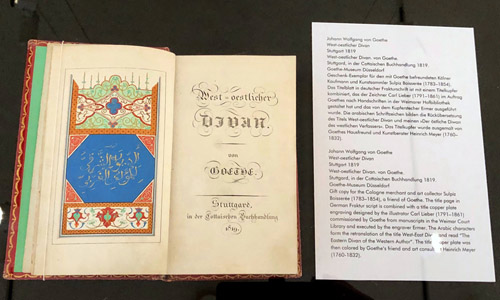 الديوان الشرقي
للمؤلف الغربي
West-oestlicher
Divan.
von
GOETHE.
Stuttgard,
in der Cottaischen Buchhandlung
1819.
Johann Wolfgang von Goethe
West-oestlicher Divan
Stuttgart 1819
West-oestlicher Divan. von Goethe.
Stuttgard, in der Cottaischen Buchhandlung 1819.
Goethe-Museum Düsseldorf
Geschenk-Exemplar für den mit Goethe befreundeten Kölner
Kaufmann und Kunstsammler Sulpiz Boisserée (1783–1854).
Das Titelblatt in deutscher Frakturschrift ist mit einem Titelkupfer
kombiniert, das der Zeichner Carl Lieber (1791–1861) im Auftrag
Goethes nach Handschriften in der Weimarer Hofbibliothek
gestaltet hat und das von dem Kupferstecher Ermer ausgeführt
wurde. Die arabischen Schriftzeichen bilden die Rückübersetzung
des Titels West-oestlicher Divan und meinen »Der östliche Divan
des westlichen Verfassers«. Das Titelkupfer wurde ausgemalt von
Goethes Hausfreund und Kunstberater Heinrich Meyer (1760–
1832).
Johann Wolfgang von Goethe
West-oestlicher Divan
Stuttgart 1819
West-oestlicher Divan. von Goethe.
Stuttgard, in der Cottaischen Buchhandlung 1819.
Goethe-Museum Düsseldorf
Gift copy for the Cologne merchant and art collector Sulpiz
Boisserée (1783–1854), a friend of Goethe. The title page in
German Fraktur script is combined with a title copper plate
engraving designed by the illustrator Carl Lieber (1791–1861)
commissioned by Goethe from manuscripts in the Weimar Court
Library and executed by the engraver Ermer. The Arabic characters
form the retranslation of the title West-East Divan and read "The
Eastern Divan of the Western Author". The title copper plate was
then colored by Goethe's friend and art consultant Heinrich Meyer
(1760-1832).